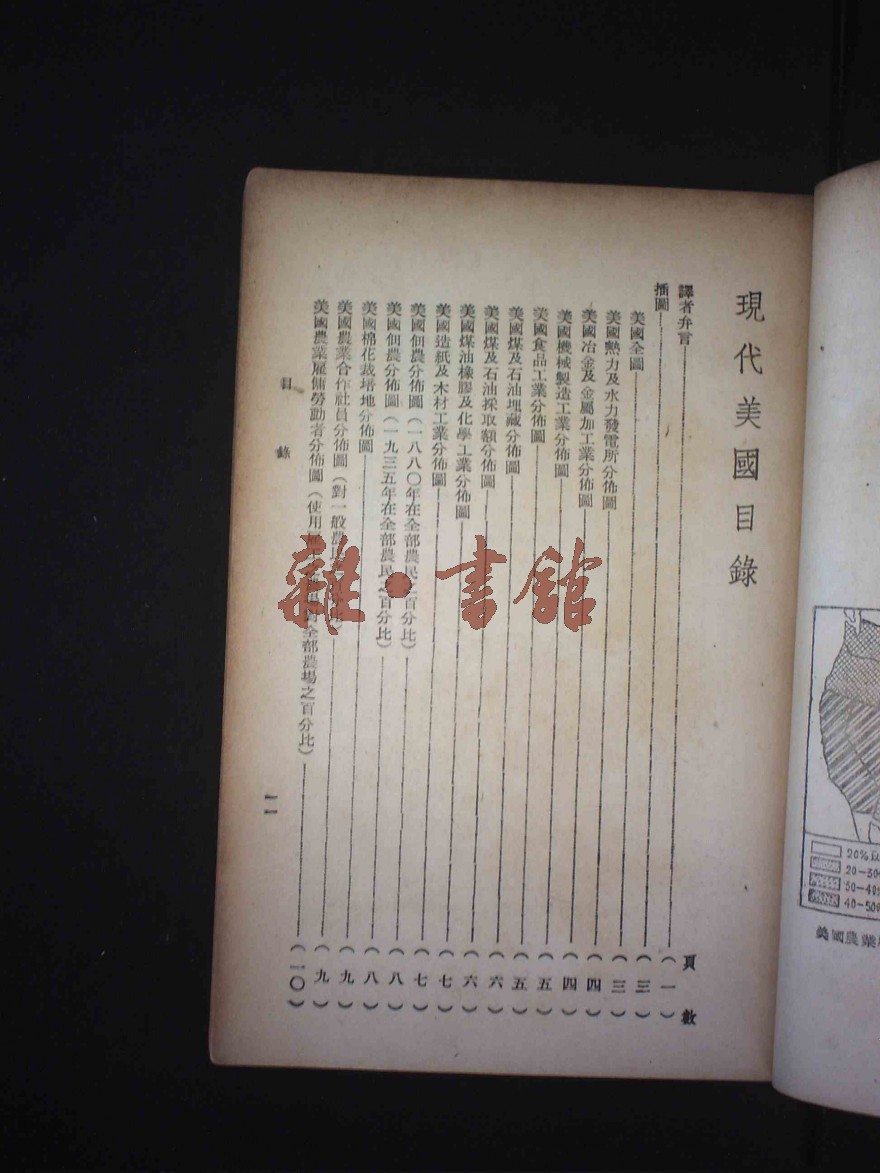 現代美國目錄
頁數
譯者弁言（一）
插圖（三）
美國全圖（三）
美國熱力及水力發電所分佈圖（四）
美國冶金及金屬加工業分佈圖（四）
美國機械製造工業分佈圖（五）
美國食品工業分佈圖（五）
美國煤及石油埋藏分佈圖（六）
美國煤及石油採取額分佈圖（六）
美國煤油橡膠及化學工業分佈圖（七）
美國造紙及木材工業分佈圖（七）
美國佃農分佈圖（一八八〇年在全部農民之百分比）（八）
美國佃農分佈圖（一九三五年在全部農民之百分比）（八）
美國棉花栽培地分佈圖（九）
美國農業合作社員分佈圖（對一般農民百分比）（九）
美國農業雇傭勞動者分佈圖（使用全部農場之百分比）（一〇）
目錄
雜·書館
20%
20-30%
30-40%
40-50%
美國農業